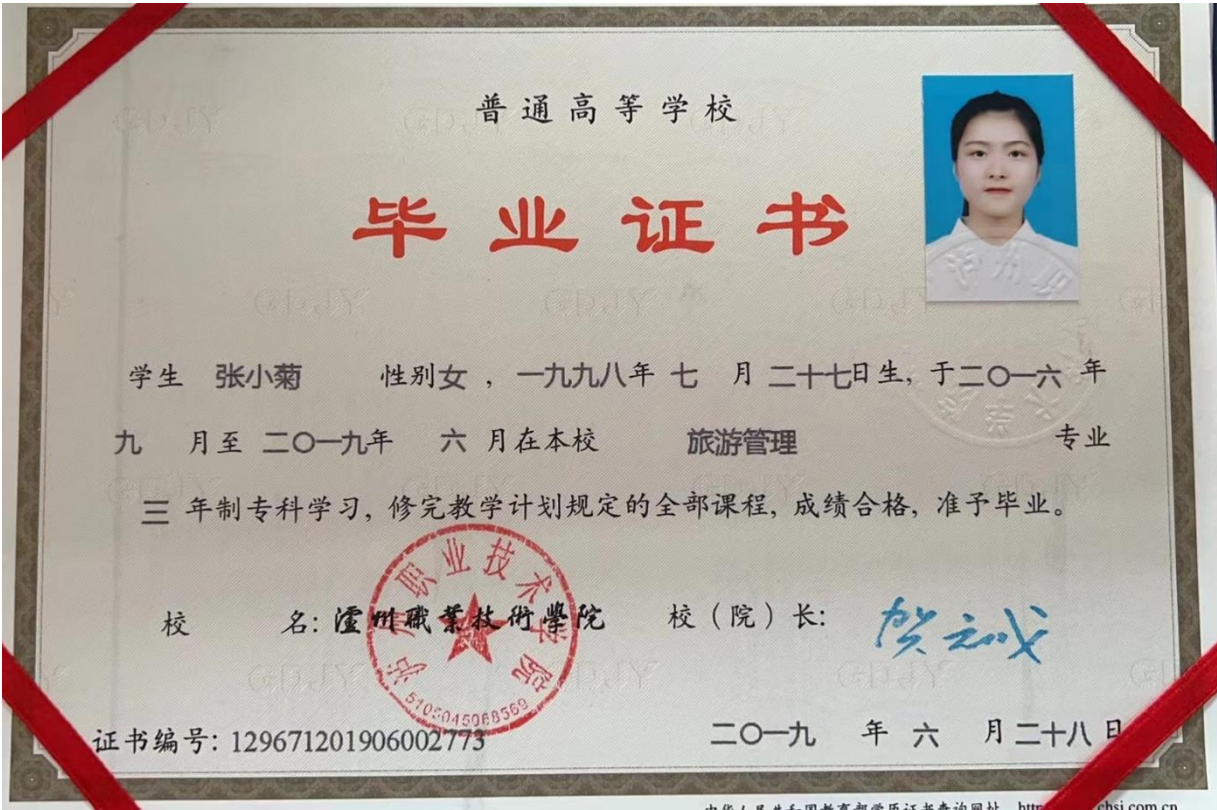 普通高等学校
毕业证书
学生 张小菊 性别女，一九九八年 七 月 二十七日生，于二〇一六 年
九 月至 二〇一九年 六 月在本校 旅游管理 专业
三 年制专科学习，修完教学计划规定的全部课程，成绩合格，准予毕业。
校 名：瀘州職業技術學院 校（院）长：贺元成
泸州职业技术学院
5105045068569
证书编号：129671201906002773
二〇一九 年 六 月 二十八 日
中华人民共和国教育部学历证书查询网址 http chsi.com.cn